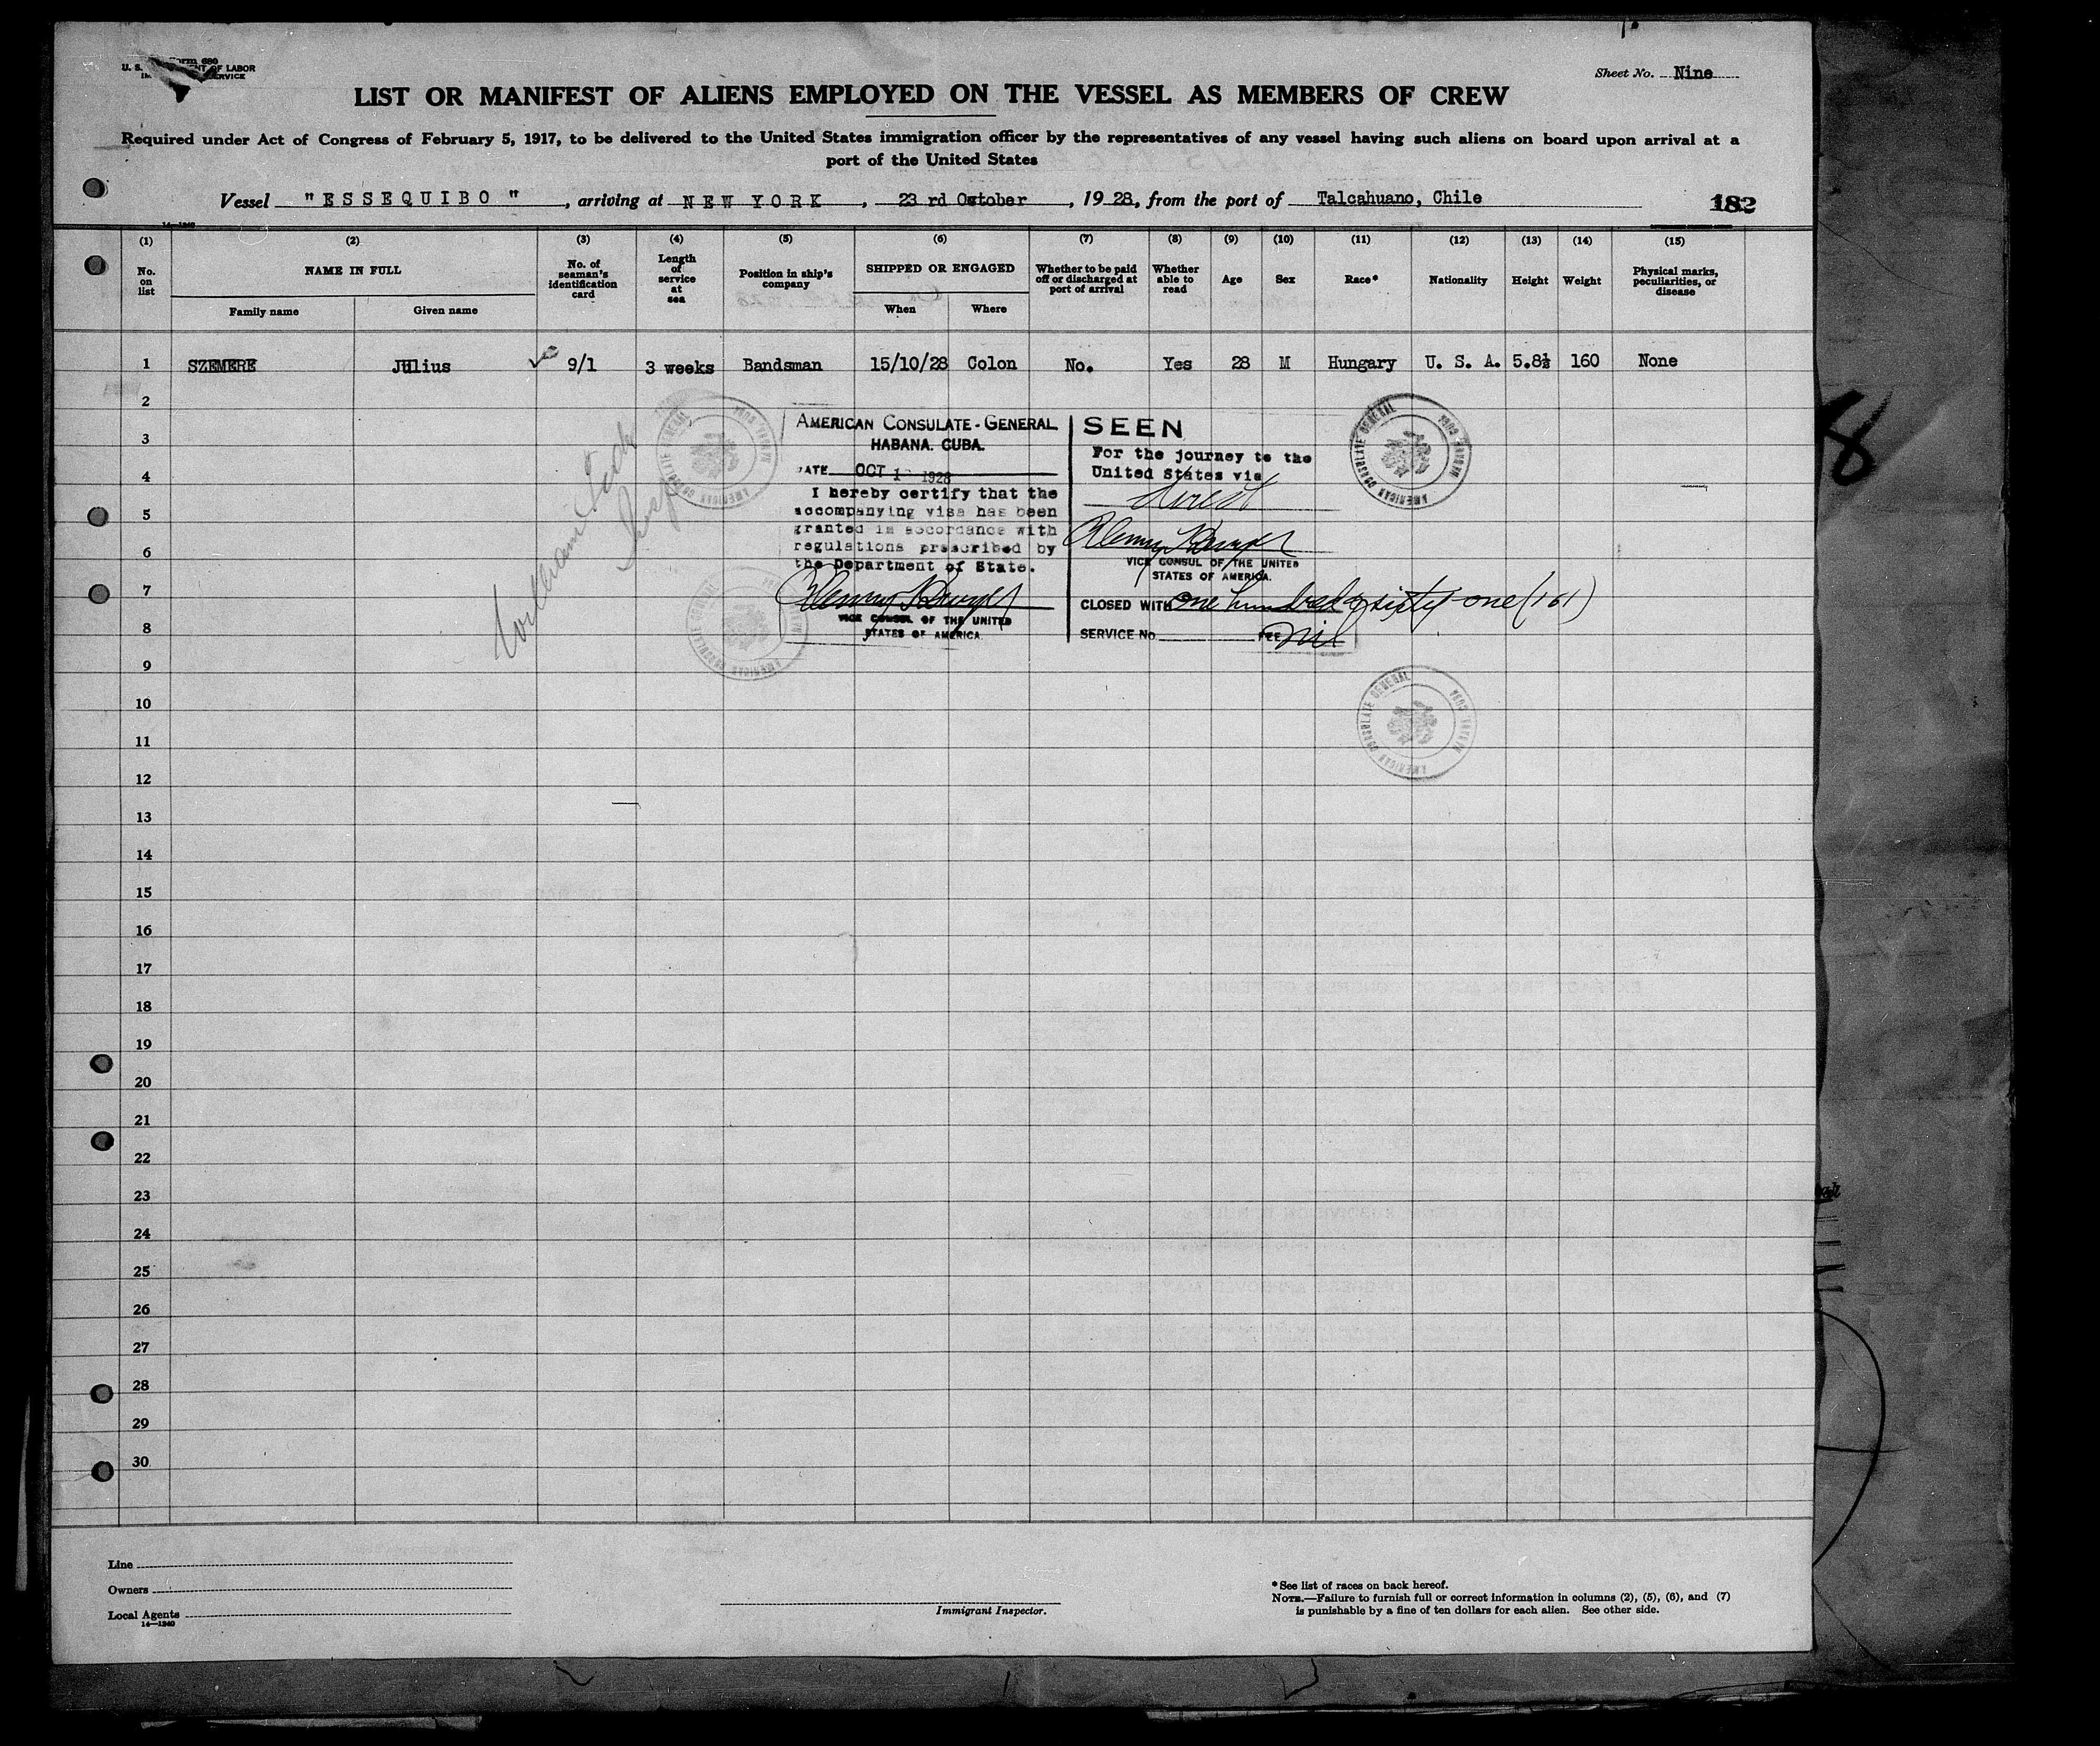 Form 680
U. S. OF LABOR
SERVICE
Sheet No. Nine
LIST OR MANIFEST OF ALIENS EMPLOYED ON THE VESSEL AS MEMBERS OF CREW
Required under Act of Congress of February 5, 1917, to be delivered to the United States immigration officer by the representatives of any vessel having such aliens on board upon arrival at a
port of the United States
Vessel "ESSEQUIBO", arriving at NEW YORK, 23 rd October, 1928, from the port of Talcahuano, Chile
182
14—1240
(1) (2) (3) (4) (5) (6) (7) (8) (9) (10) (11) (12) (13) (14) (15)
No. on list
NAME IN FULL
Family name
Given name
No. of seaman's identification card
Length of service at sea
Position in ship's company
SHIPPED OR ENGAGED
When
Where
Whether to be paid off or discharged at port of arrival
Whether able to read
Age
Sex
Race*
Nationality
Height
Weight
Physical marks, peculiarities, or disease
1 SZEMERE Julius 9/1 3 weeks Bandsman 15/10/28 Colon No. Yes 28 M Hungary U. S. A. 5.8½ 160 None
2
3
4
5
6
7
8
9
10
11
12
13
14
15
16
17
18
19
20
21
22
23
24
25
26
27
28
29
30
AMERICAN CONSULATE-GENERAL
HABANA. CUBA.
DATE OCT 1 1928
I hereby certify that the
accompanying visa has been
granted in accordance with
regulations prescribed by
the Department of State.
VICE CONSUL OF THE UNITED
STATES OF AMERICA.
SEEN
For the journey to the
United States via
direct
VICE CONSUL OF THE UNITED
STATES OF AMERICA.
CLOSED WITH One hundred & sixty-one (161)
SERVICE No. FEE nil
AMERICAN CONSULATE GENERAL HABANA, CUBA
AMERICAN CONSULATE GENERAL HABANA, CUBA
AMERICAN CONSULATE GENERAL HABANA, CUBA
AMERICAN CONSULATE GENERAL HABANA, CUBA
William
Insp
8
Line
Owners
Local Agents
14—1240
Immigrant Inspector.
* See list of races on back hereof.
NOTE.—Failure to furnish full or correct information in columns (2), (5), (6), and (7)
is punishable by a fine of ten dollars for each alien. See other side.